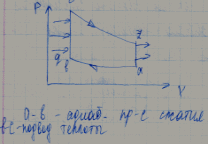 P
c
z
q
в
a
V
0-в - адиаб- пр-с сжатия
в-с-подвод теплоты